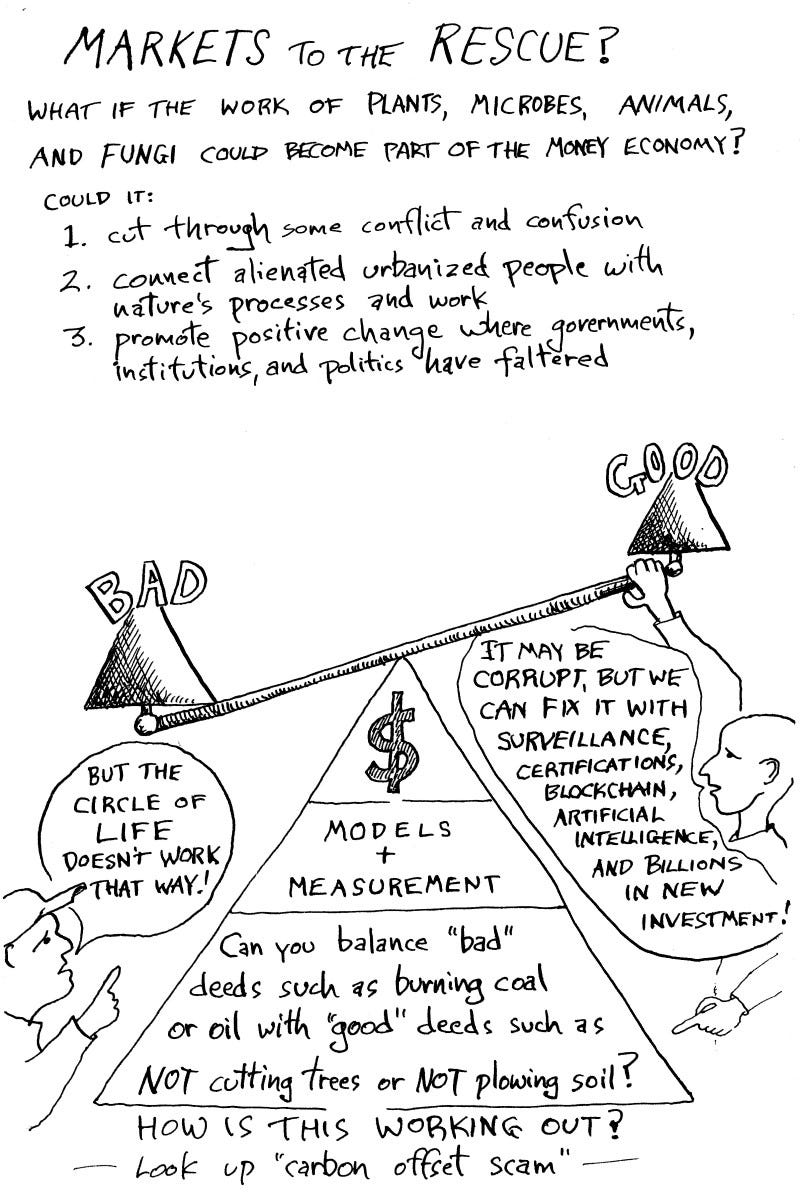 MARKETS TO THE RESCUE?
WHAT IF THE WORK OF PLANTS, MICROBES, ANIMALS,
AND FUNGI COULD BECOME PART OF THE MONEY ECONOMY?
COULD IT:
1. cut through some conflict and confusion
2. connect alienated urbanized people with
nature's processes and work
3. promote positive change where governments,
institutions, and politics have faltered
GOOD
BAD
IT MAY BE
CORRUPT, BUT WE
CAN FIX IT WITH
SURVEILLANCE,
CERTIFICATIONS,
BLOCKCHAIN,
ARTIFICIAL
INTELLIGENCE,
AND BILLIONS
IN NEW
INVESTMENT!
$
BUT THE
CIRCLE OF
LIFE
DOESN'T WORK
THAT WAY!
MODELS
+
MEASUREMENT
Can you balance "bad"
deeds such as burning coal
or oil with "good" deeds such as
NOT cutting trees or NOT plowing soil?
HOW IS THIS WORKING OUT?
— Look up "carbon offset scam" —